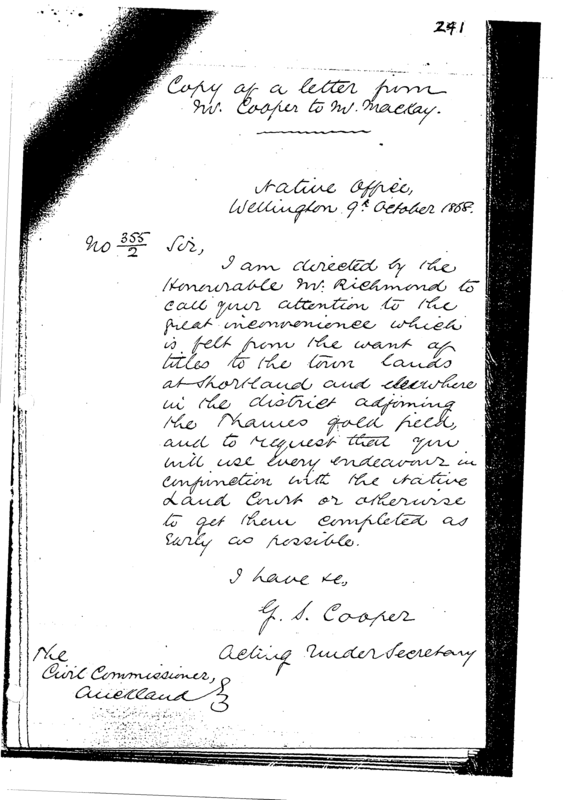 241
Copy of a letter from
Mr. Cooper to Mr. Mackay.
Native Office,
Wellington 9th October 1868.
No 355/2 Sir,
I am directed by the
Honourable Mr. Richmond to
call your attention to the
great inconvenience which
is felt from the want of
titles to the town lands
at Shortland and elsewhere
in the district adjoining
the Thames gold field,
and to request that you
will use every endeavour in
conjunction with the Native
Land Court or otherwise
to get them completed as
early as possible.
I have &c,
G. S. Cooper
Acting Under Secretary
The
Civil Commissioner,
Auckland